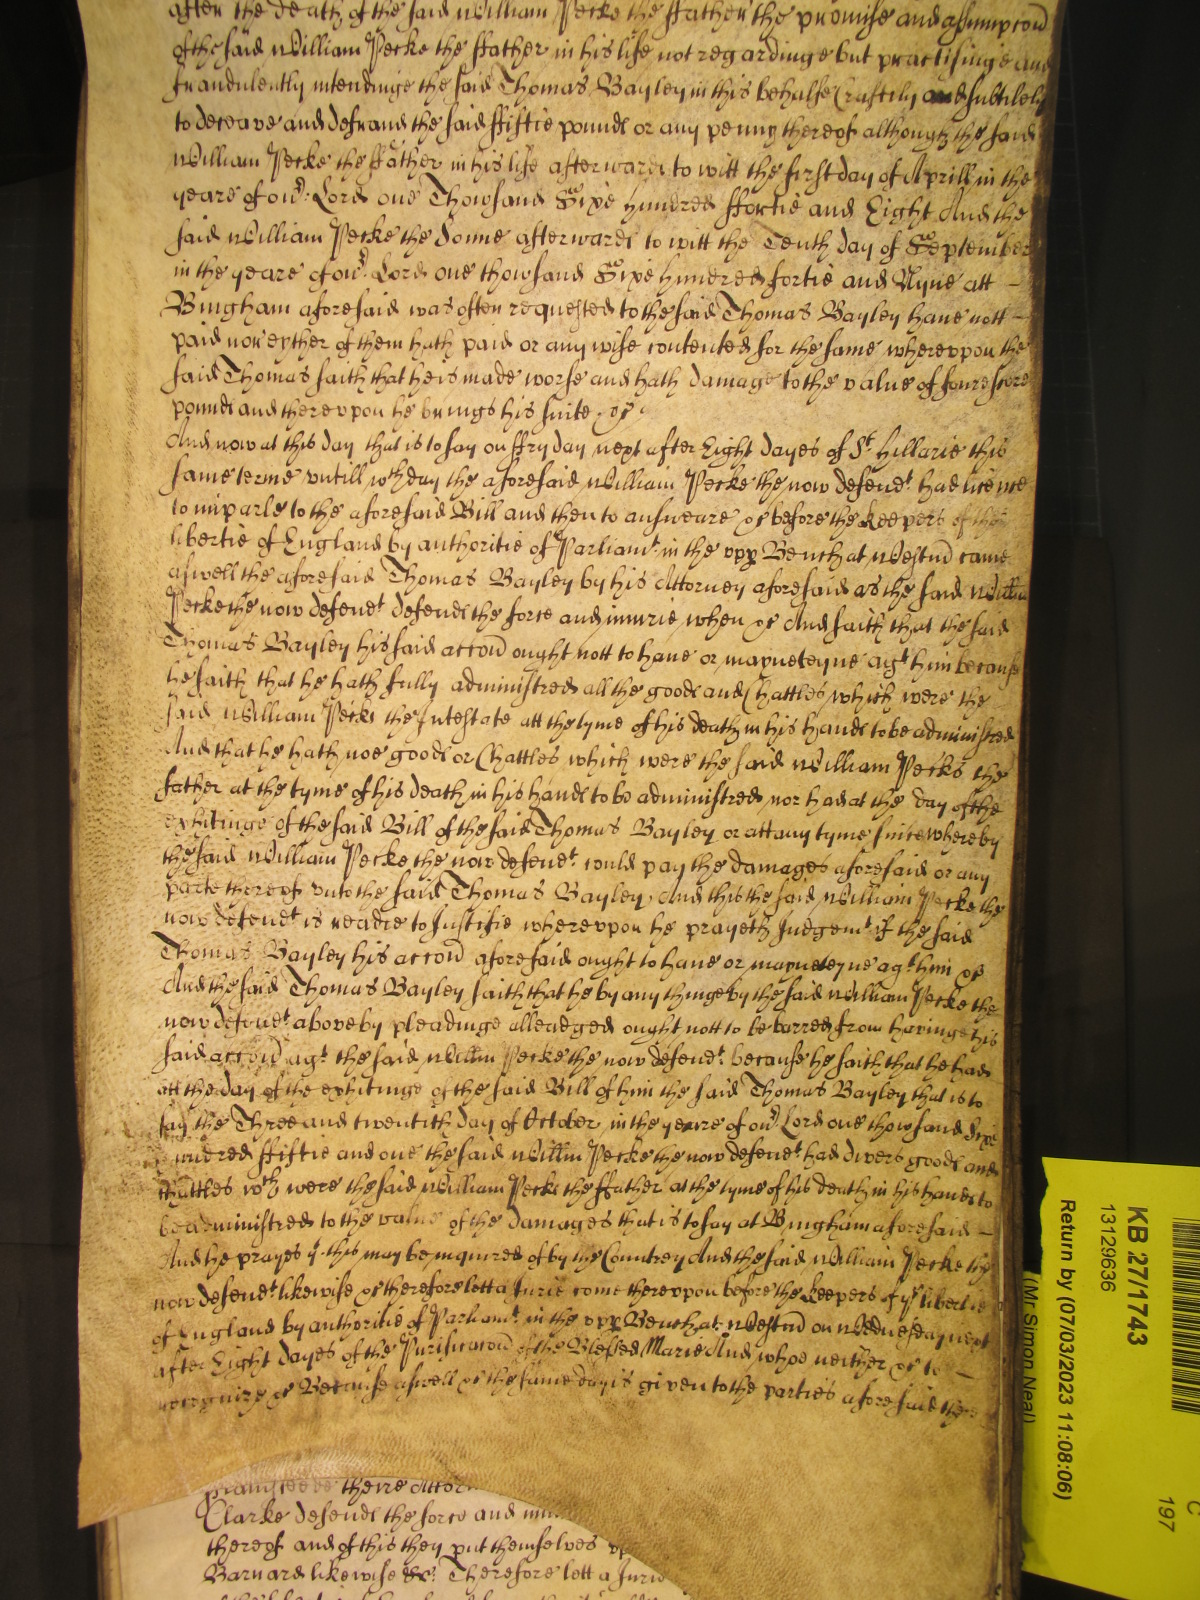 after the death of the said William Pecke the ffather the promise and assumpcon
of the said William Pecke the ffather in his life not regardinge but practisinge and
fraudulently intendinge the said Thomas Bayley in this behalfe Craftily and subtilely
to deceave and defraud the said ffiftie pounds or any penny thereof although the said
William Pecke the ffather in his life afterwards to witt the first day of Aprill in the
yeare of our: Lord one Thowsand Sixe hundred ffortie and Eight And the
said William Pecke the Sonne afterwards to witt the Tenth day of September
in the yeare of our Lord one thowsand Sixe hundred fortie and Nyne att
Bingham aforesaid was often requested to the said Thomas Bayley have nott
paid nor eyther of them hath paid or any wise contented for the same wherevpon the
said Thomas saith that he is made worse and hath damage to the value of fourescore
pounds and therevpon he brings his suite &c
And now at this day that is to say on ffryday next after Eight dayes of St. Hillarie this
same terme vntill wch day the aforesaid William Pecke the now defendt. had licence
to imparle to the aforesaid Bill and then to answeare &c before the keepers of the
libertie of England by authoritie of Parliamt. in the vpp Bench at Westmr came
aswell the aforesaid Thomas Bayley by his Attorney aforesaid as the said Willm
Pecke the now defendt. defends the force and iniurie when &c And saith that the said
Thomas Bayley his said accon ought nott to have or maynteyne agt. him because
he saith that he hath fully administred all the goods and Chattles which were the
said William Pecke the Intestate att the tyme of his death in his hands to be administred
And that he hath noe goods or Chattles which were the said William Pecks the
father at the tyme of his death in his hands to be administred nor had at the day of the
exhitinge of the said Bill of the said Thomas Bayley or att any tyme since whereby
the said William Pecke the now defendt. could pay the damages aforesaid or any
parte thereof vnto the said Thomas Bayley And this the said William Pecke the
now defendt is readie to Justifie wherevpon he prayeth Judgemt. if the said
Thomas Bayley his accon aforesaid ought to have or maynteyne agt. him &c
And the said Thomas Bayley saith that he by any thinge by the said William Pecke the
now defendt. above by pleadinge alleadged ought nott to be barred from havinge his
said accon agt. the said Willm Pecke the now defendt. because he saith that he had
att the day of the exhitinge of the said Bill of him the said Thomas Bayley that is to
say the Three and twentith day of October in the yeare of our Lord one thowsand Sixe
hundred ffiftie and one the said Willm Pecke the now defendt. had divers goods and
Chattles wch were the said William Pecke the ffather at the tyme of his death in his hands to
be administred to the value of the damages that is to say at Bingham aforesaid
And he prayes yt. this may be inquired of by the Countrey And the said William Pecke the
now defendt. likewise &c therefore lett a Jurie come therevpon before the keepers of ye libertie
of England by authoritie of Parliamt. in the vpp Bench at Westmr on Wednesday next
after Eight dayes of the Purificacon of the Blessed Marie And whoe neither &c to
recognize &c Because aswell &c the same day is given to the parties aforesaid there
theire Attor
Clarke defends the force and
thereof and of this they put themselves
Barnard likewise &c: Therefore lett a Jurie
KB 27/1743
13129636
Return by (07/03/2023 11:08:06)
(Mr Simon Neal)
C
197